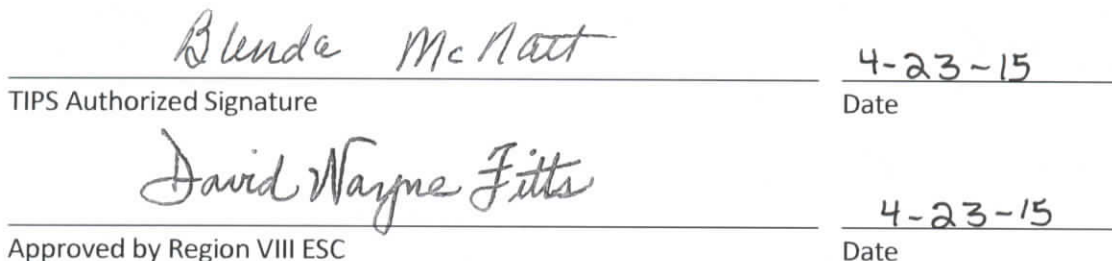 Blenda McNatt 4-23-15
TIPS Authorized Signature Date
David Wayne Fitts 4-23-15
Approved by Region VIII ESC Date